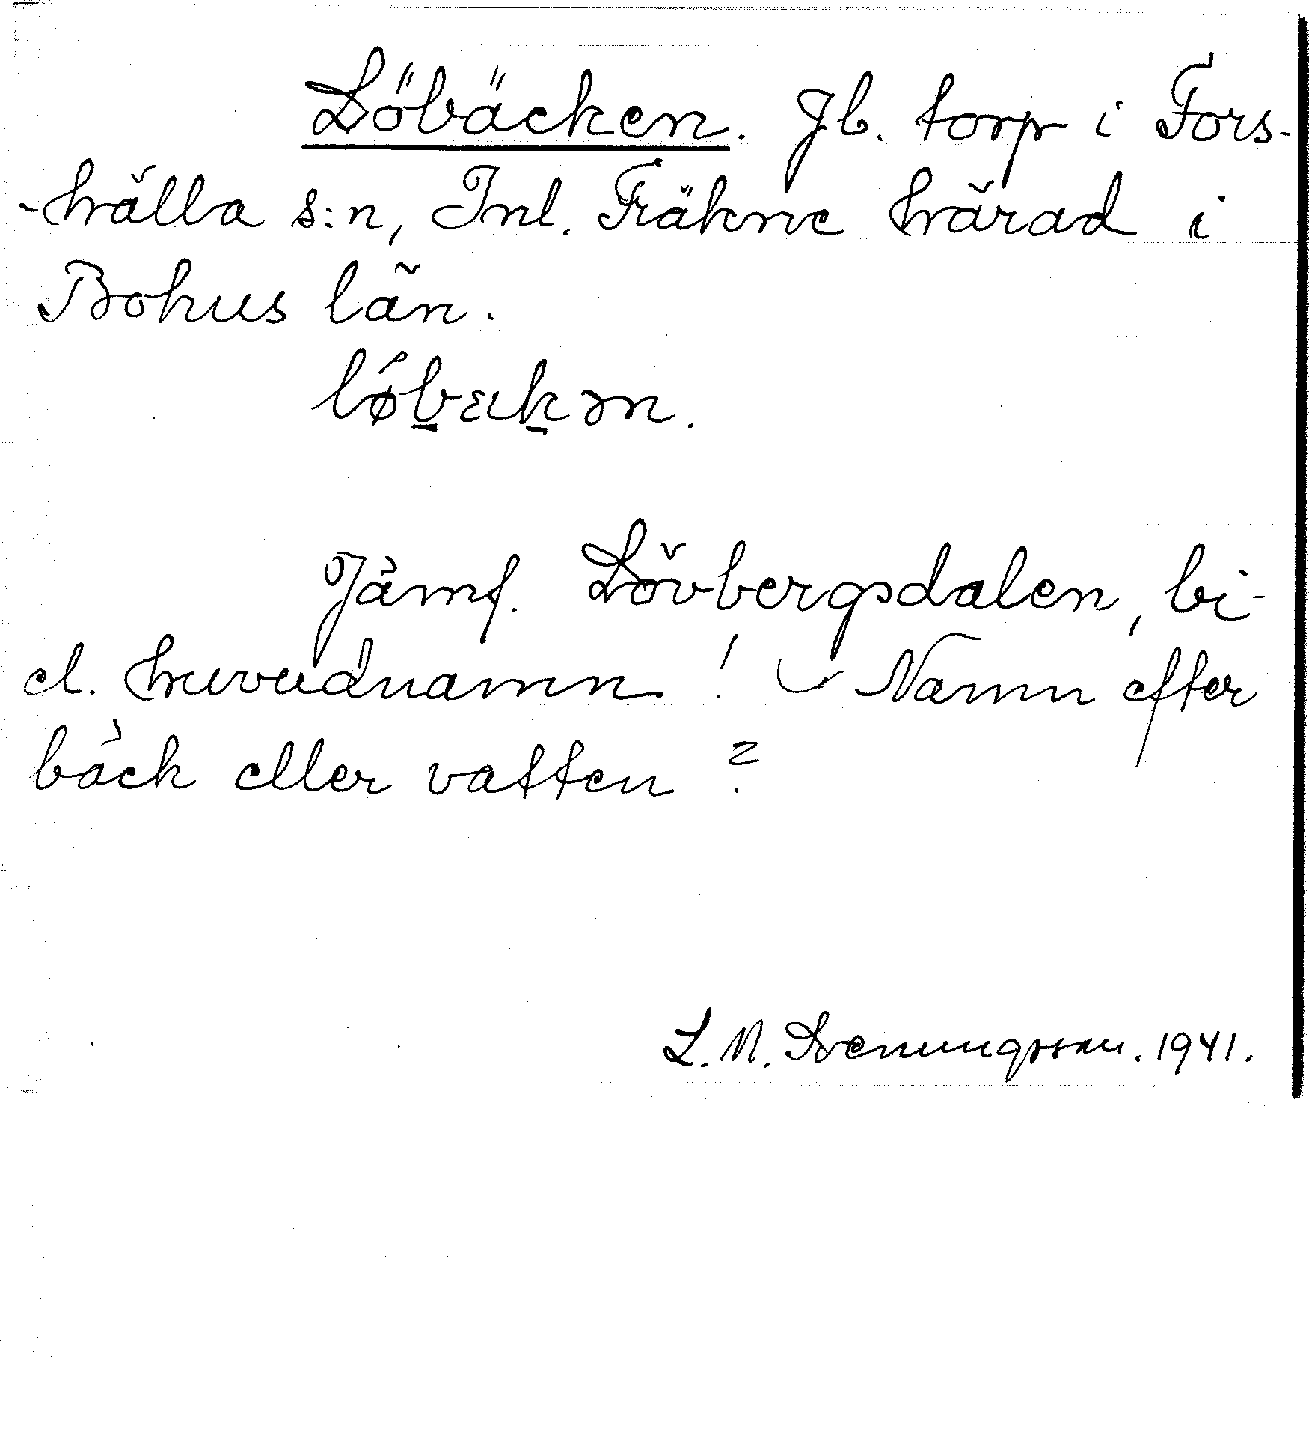 Löbäcken. Jb. torp i Fors-
-hälla s:n, Inl. Fräkne härad i
Bohus län.
lǿb̲ɛk̲ən.
Jämf. Lövbergsdalen, bi-
el. huvudnamn! Namn efter
bäck eller vatten?
L. N. Svenungsson. 1941.